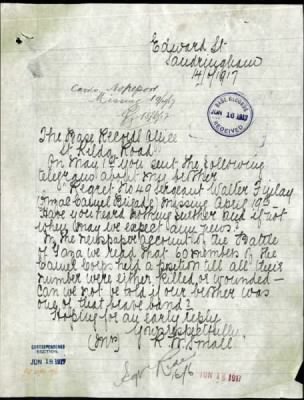 Edward St
Sandringham
14/6/1917
Missing 19/4/17
BASE RECORDS
JUN 16 1917
RECEIVED
The Base Records Office
St Kilda Road
On May 14 you sent the following
telegram about my brother
"Regret No 49 Sergeant Walter Finlay
Small Camel Brigade missing April 19th"
Have you heard nothing further and if not
when may we expect any news?
In the newspaper account of the Battle
of Gaza we read that 60 members of the
Camel Corps held a position till all their
number were either killed or wounded –
Can we not be told if our brother was
one of that brave band?
Hoping for an early reply
Yours respectfully
(Mrs) R. W. Small
CORRESPONDENCE
SECTION
JUN 18 1917
16/6
JUN 18 1917